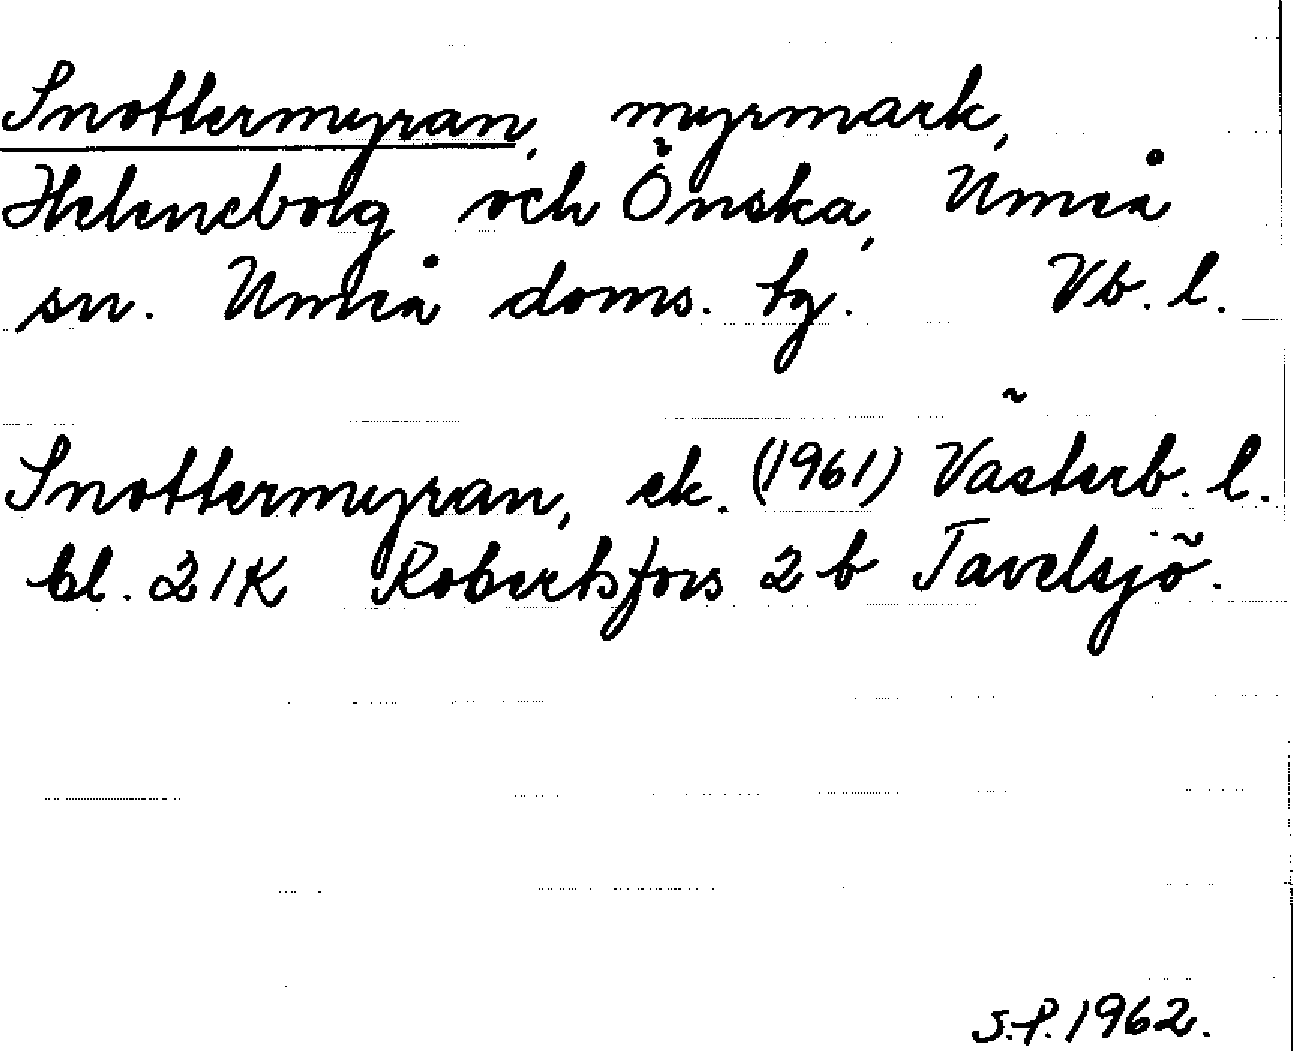 Snottermyran, myrmark,
Heleneborg och Önska, Umeå
sn. Umeå doms. tg. Vb. l.
Snottermyran, ek. (1961) Västerb. l.
bl. 21K Robertsfors 2 b Tavelsjö.
S.P. 1962.